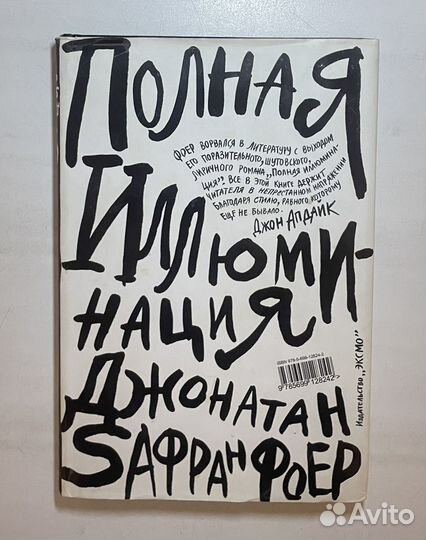 ПОЛНАЯ
ФОЕР ВОРВАЛСЯ В ЛИТЕРАТУРУ С ВЫХОДОМ
ЕГО ПОРАЗИТЕЛЬНОГО, ШУТОВСКОГО,
ЛИРИЧНОГО РОМАНА „ПОЛНАЯ ИЛЛЮМИНА-
ЦИЯ". ВСЕ В ЭТОЙ КНИГЕ ДЕРЖИТ
ЧИТАТЕЛЯ В НЕПРЕСТАННОМ НАПРЯЖЕНИИ
БЛАГОДАРЯ СТИЛЮ, РАВНОГО КОТОРОМУ
ЕЩЕ НЕ БЫВАЛО.
ДЖОН АПДАЙК
ИЛЛЮМИ-
НАЦИЯ
ISBN 978-5-699-12824-2
9 785699 128242 >
Издательство „ЭКСМО"
ДЖОНАТАН
SАФРАН ФОЕР
Avito